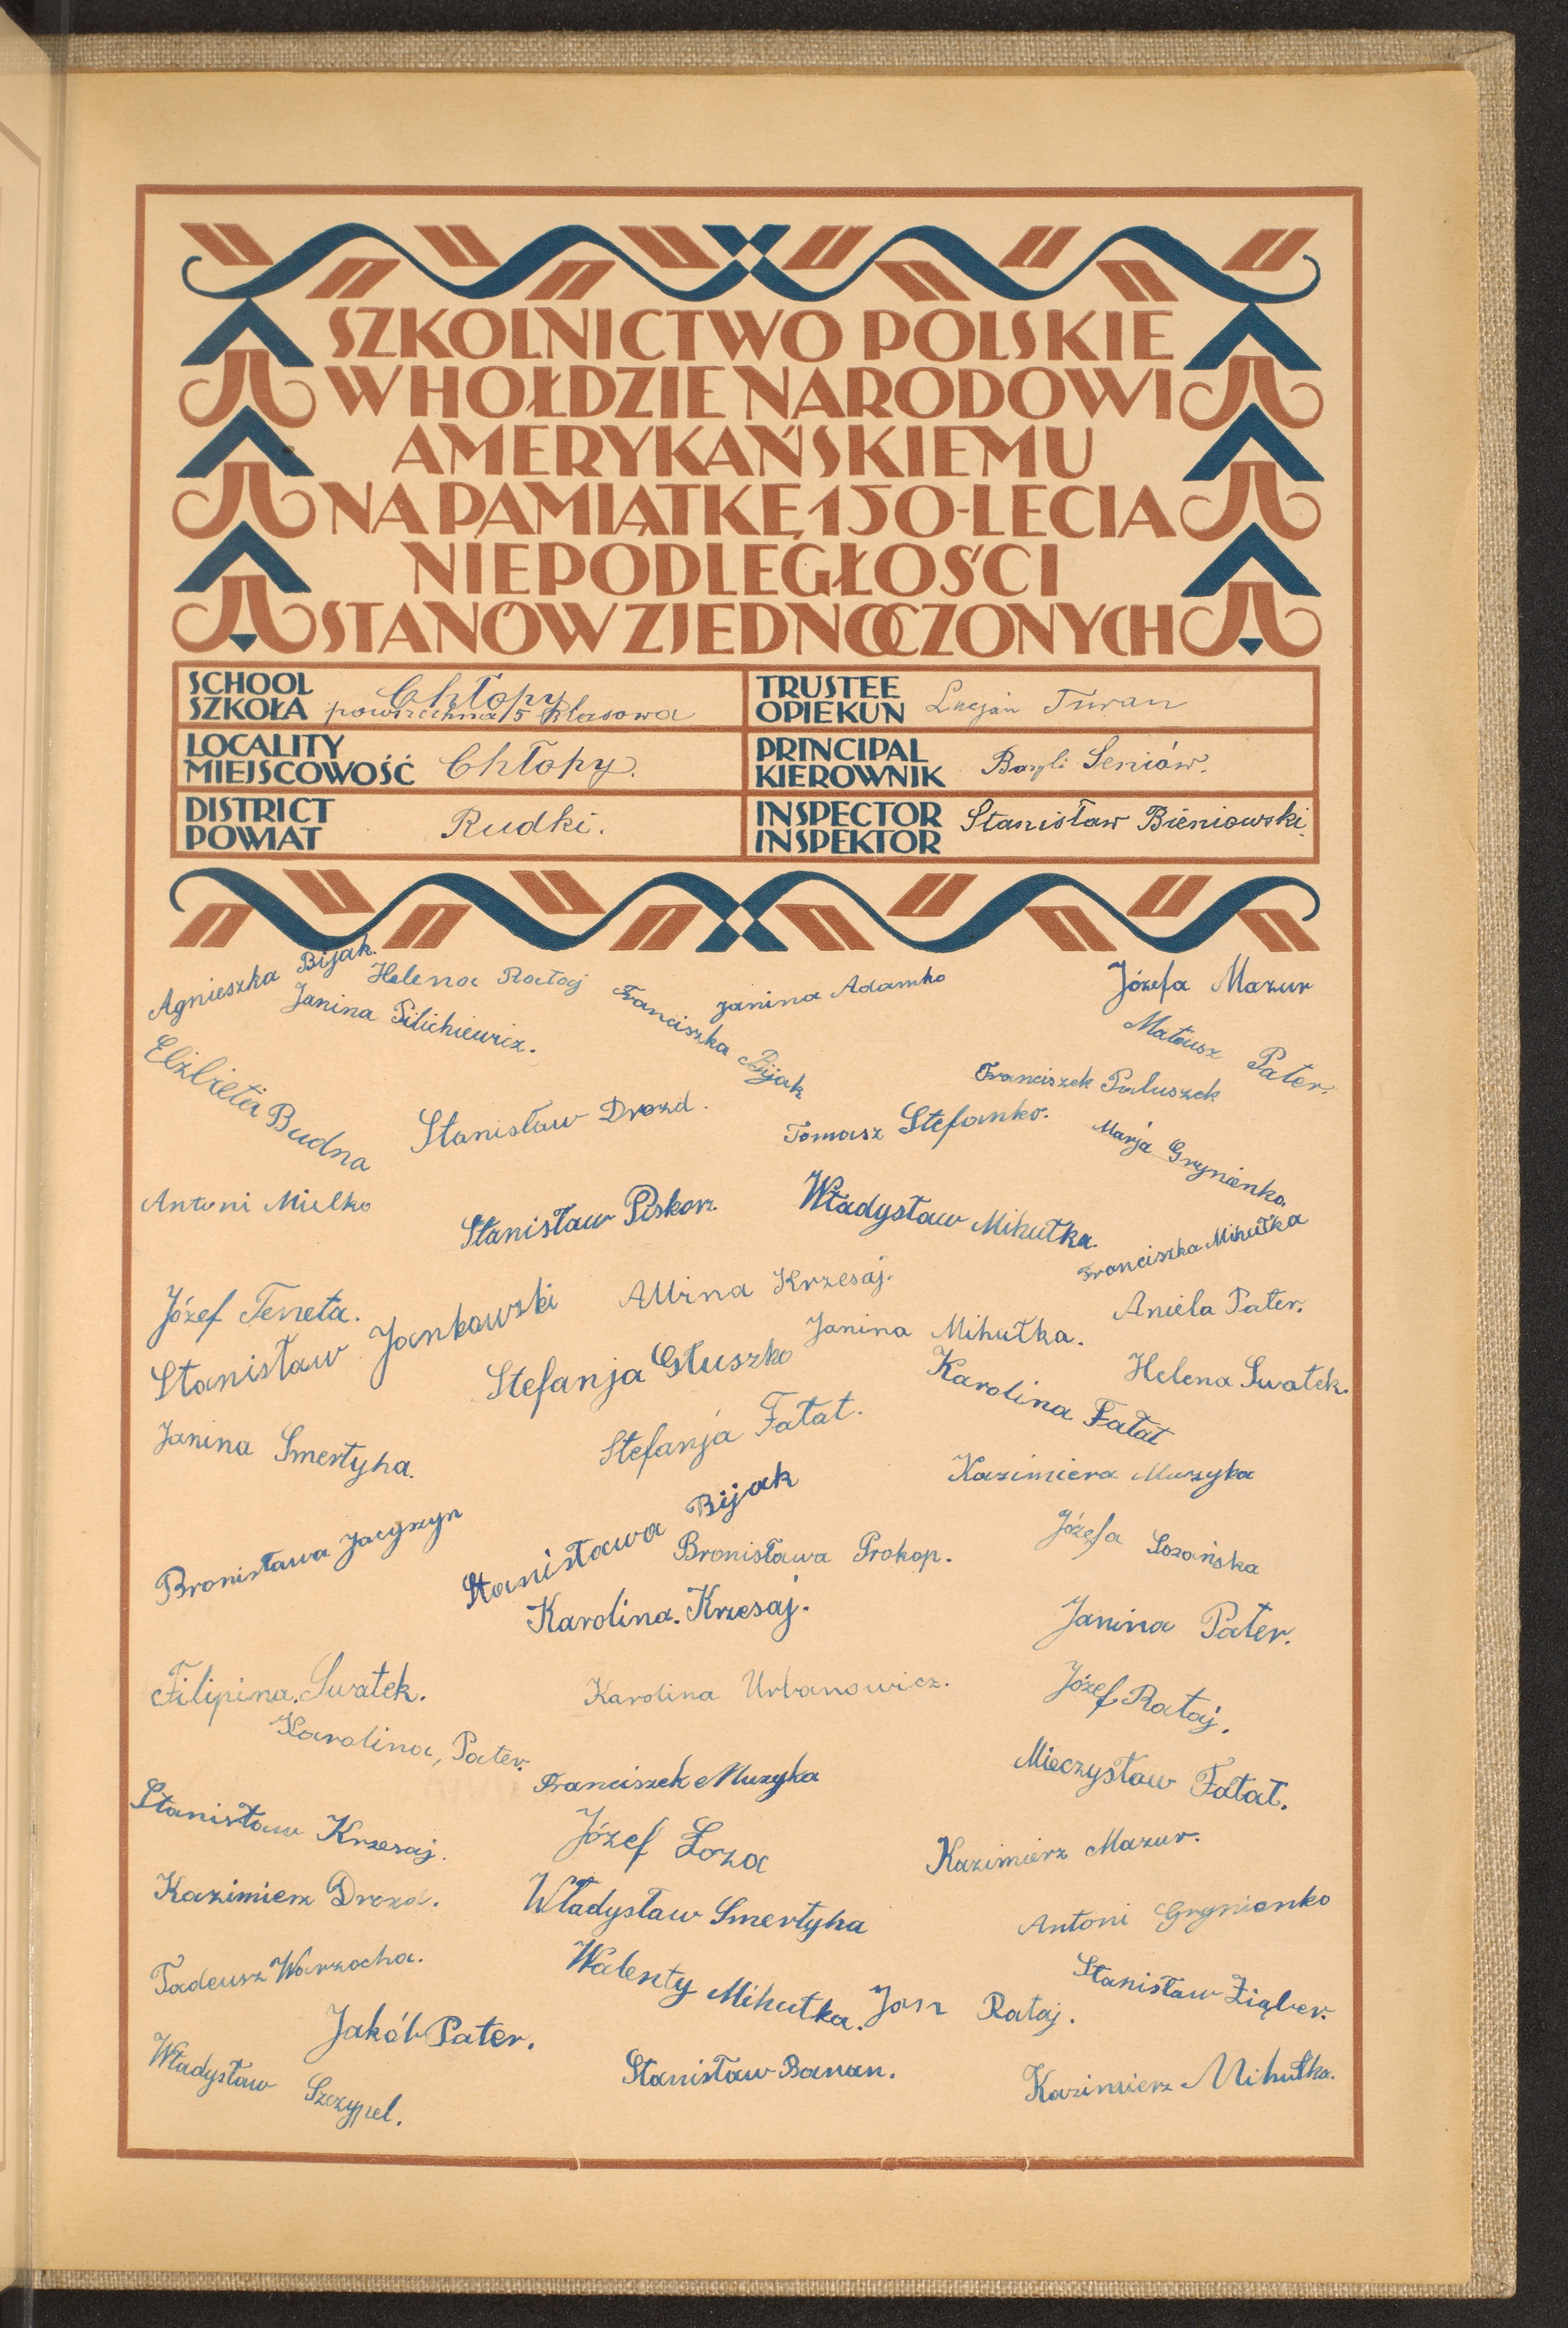 SZKOLNICTWO POLSKIE
W HOŁDZIE NARODOWI
AMERYKAŃSKIEMU
NA PAMIĄTKĘ 150-LECIA
NIEPODLEGŁOŚCI
STANÓW ZJEDNOCZONYCH
SCHOOL
SZKOŁA
Chłopy
powszechna 5 klasowa
TRUSTEE
OPIEKUN
Lucjan Turan
LOCALITY
MIEJSCOWOŚĆ
Chłopy.
PRINCIPAL
KIEROWNIK
Bazyli Seniów.
DISTRICT
POWIAT
Rudki.
INSPECTOR
INSPEKTOR
Stanisław Bieniowski
Agnieszka Bijak.
Helena Rataj
Janina Silichiewicz.
Franciszka Bijak
Janina Adamko
Józefa Mazur
Mateusz Pater.
Elżbieta Budna
Stanisław Drozd.
Franciszek Paluszek
Tomasz Stefanko.
Marja Grynienko.
Antoni Mielko
Stanisław Piskorz.
Władysław Mihułka.
Franciszka Mihułka
Józef Teneta.
Stanisław Jankowski
Krzesaj.
Janina Mihułka.
Aniela Pater.
Stefanja Głuszko
Karolina Fatat
Helena Swatek.
Janina Smertyha.
Stefanja Fatat.
Kazimiera Muzyka
Bronisława Jacyszyn
Stanisława Bijak
Bronisława Prokop.
Józefa Lozańska
Karolina. Krzesaj.
Janina Pater.
Filipina. Swatek.
Karolina Urbanowicz.
Józef Rataj.
Karolina, Pater.
Franciszek Muzyka
Mieczysław Fatat.
Stanisław Krzesaj.
Józef Łoza
Kazimierz Mazur.
Kazimierz Drozd.
Władysław Smertyha
Antoni Grynienko
Tadeusz Warzocha.
Walenty Mihułka.
Jan Rataj.
Stanisław Ziąber.
Jakób Pater.
Władysław Szczypel.
Stanisław Banan.
Kazimierz Mihułka.